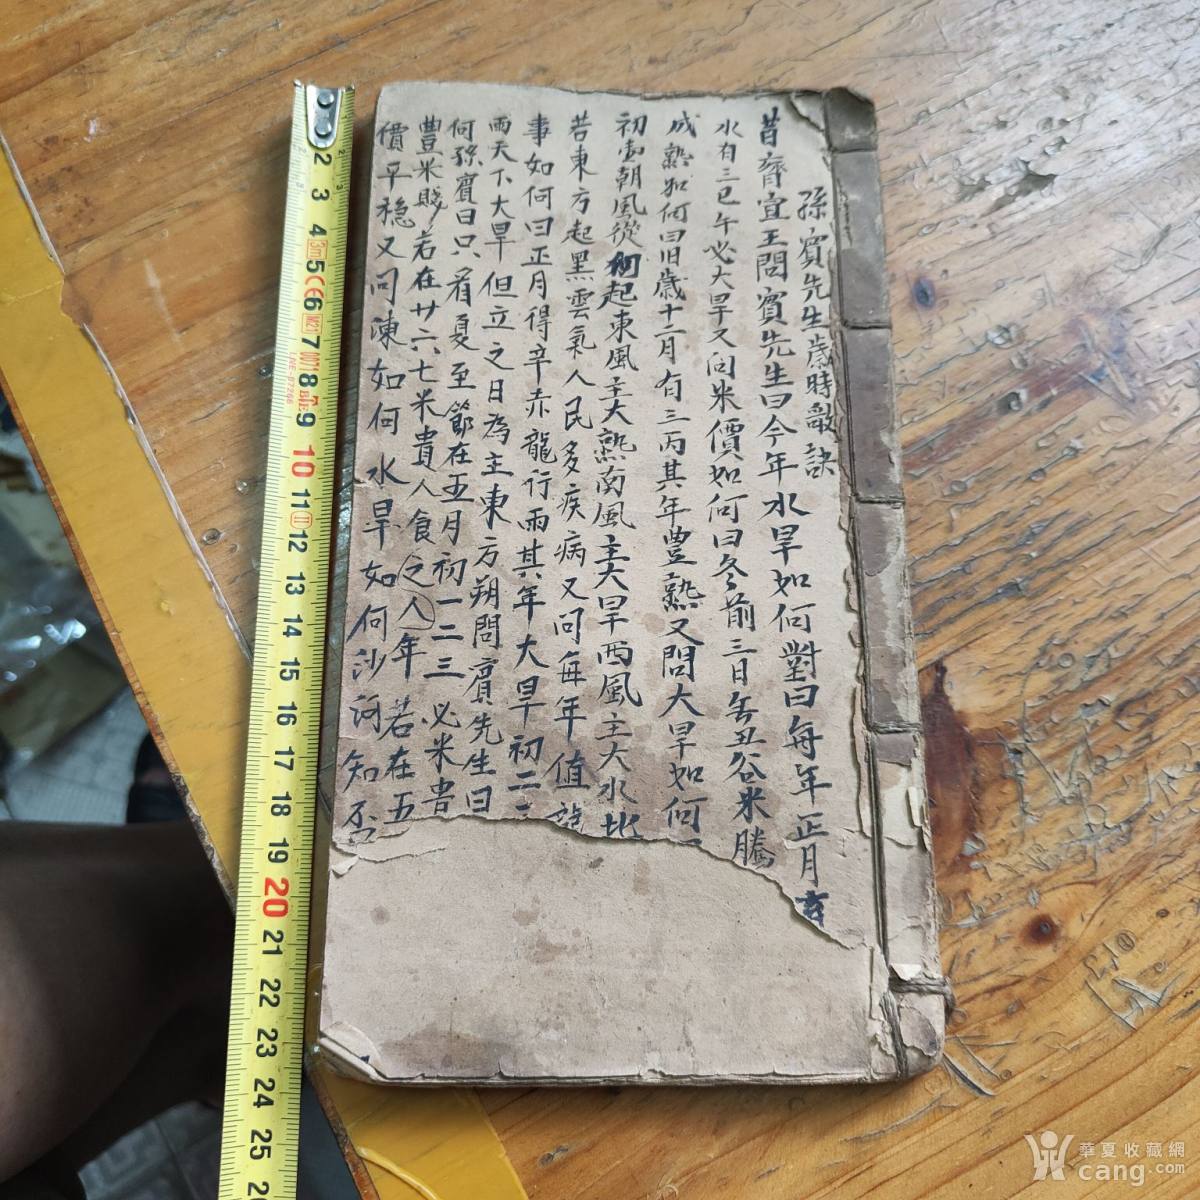 孫賓先生歲時敵訣
昔齊宣王問賓先生曰今年水旱如何對曰每年正月
水有三巳午必大旱又问米價如何曰冬前三日
丑谷米騰
成熟如何曰旧歲十二月有三丙其年豐熟又問大旱如何
初朝風從起東風主大熟南風主大旱西風主大水
若東方起黑雲氣人民多疾病又问每年值
事如何曰正月得辛赤龍行雨其年大旱初二
雨天下大旱但立之日為主東方朔問賓先生曰
何孫賓曰只看夏至節在五月初一二三必米
豊米賤若在廿六七米貴人食之人年若在五
價平稳又问凍如何水旱如何沙河知
2
3
4
5
6
7
8
9
10
11
12
13
14
15
16
17
18
19
20
21
22
23
24
25
3m
CE
華夏收藏網
cang.com